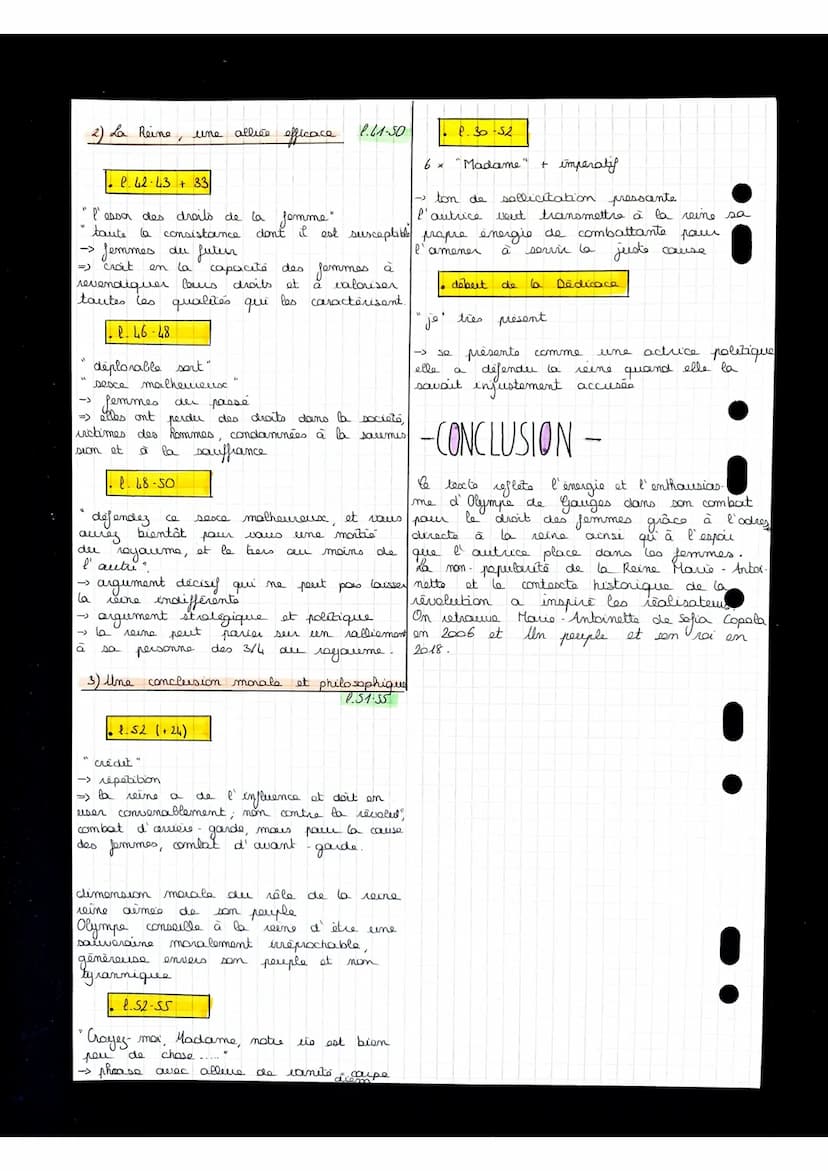 2) La Reine, une alliée efficace l.41-50
. l.42-43 + 33
"l'essor des droits de la femme"
"toute la consistance dont il est susceptible"
-> femmes du futur
=> croit en la capacité des femmes à
revendiquer leurs droits et à valoriser
toutes les qualités qui les caractérisent.
. l.46-48
"déplorable sort"
"sexe malheureux"
-> femmes du passé
=> elles ont perdu des droits dans la société,
victimes des hommes, condamnées à la soumis
sion et à la souffrance
. l.48-50
"défendez ce sexe malheureux, et vous
aurez bientôt pour vous une moitié
du royaume, et le tiers au moins de
l'autre".
-> argument décisif qui ne peut pas laisser
la reine indifférente
-> argument stratégique et politique
-> la reine peut parier sur un ralliement
à sa personne des 3/4 du royaume.
3) Une conclusion morale et philosophique
l.51-55
. l.52 (+24)
"crédit"
-> répétition
=> la reine a de l'influence et doit en
user convenablement; non contre la révolut°,
combat d'arrière-garde, mais pour la cause
des femmes, combat d'avant-garde.
dimension morale du rôle de la reine
reine aimée de son peuple
Olympe conseille à la reine d'être une
souveraine moralement irréprochable,
généreuse envers son peuple et non
tyrannique
. l.52-55
"Croyez-moi, Madame, notre vie est bien
peu de chose....."
-> phrase avec allure de vanité,
. l.30-52
6 x "Madame" + impératif
-> ton de sollicitation pressante
l'autrice veut transmettre à la reine sa
propre énergie de combattante pour
l'amener à servir la juste cause
. début de la Dédicace
"je" très présent
-> se présente comme une actrice politique
elle a défendu la reine quand elle la
savait injustement accusée
- CONCLUSION -
Ce texte reflète l'énergie et l'enthousias-
me d'Olympe de Gouges dans son combat
pour le droit des femmes grâce à l'adresse
directe à la reine ainsi qu'à l'espoir
que l'autrice place dans les femmes.
La non-popularité de la Reine Marie-Antoi-
nette et le contexte historique de la
révolution a inspiré les réalisateurs
On retrouve Marie-Antoinette de Sofia Copola
en 2006 et Un peuple et son roi en
2018.